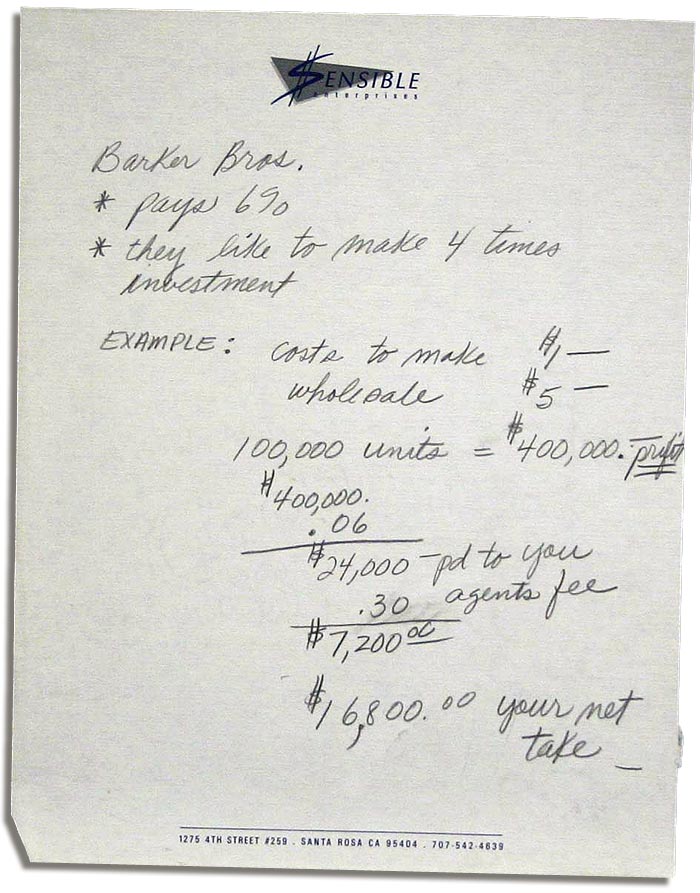 $ENSIBLE
enterprises
Barker Bros.
* pays 6%
* they like to make 4 times
investment
EXAMPLE: costs to make $1 —
wholesale $5 —
100,000 units = $400,000.— profit
$400,000.
.06
$24,000 – pd to you
.30 agents fee
$7,200 00
$16,800.00 your net
take —
1275 4TH STREET #259 . SANTA ROSA CA 95404 . 707-542-4639